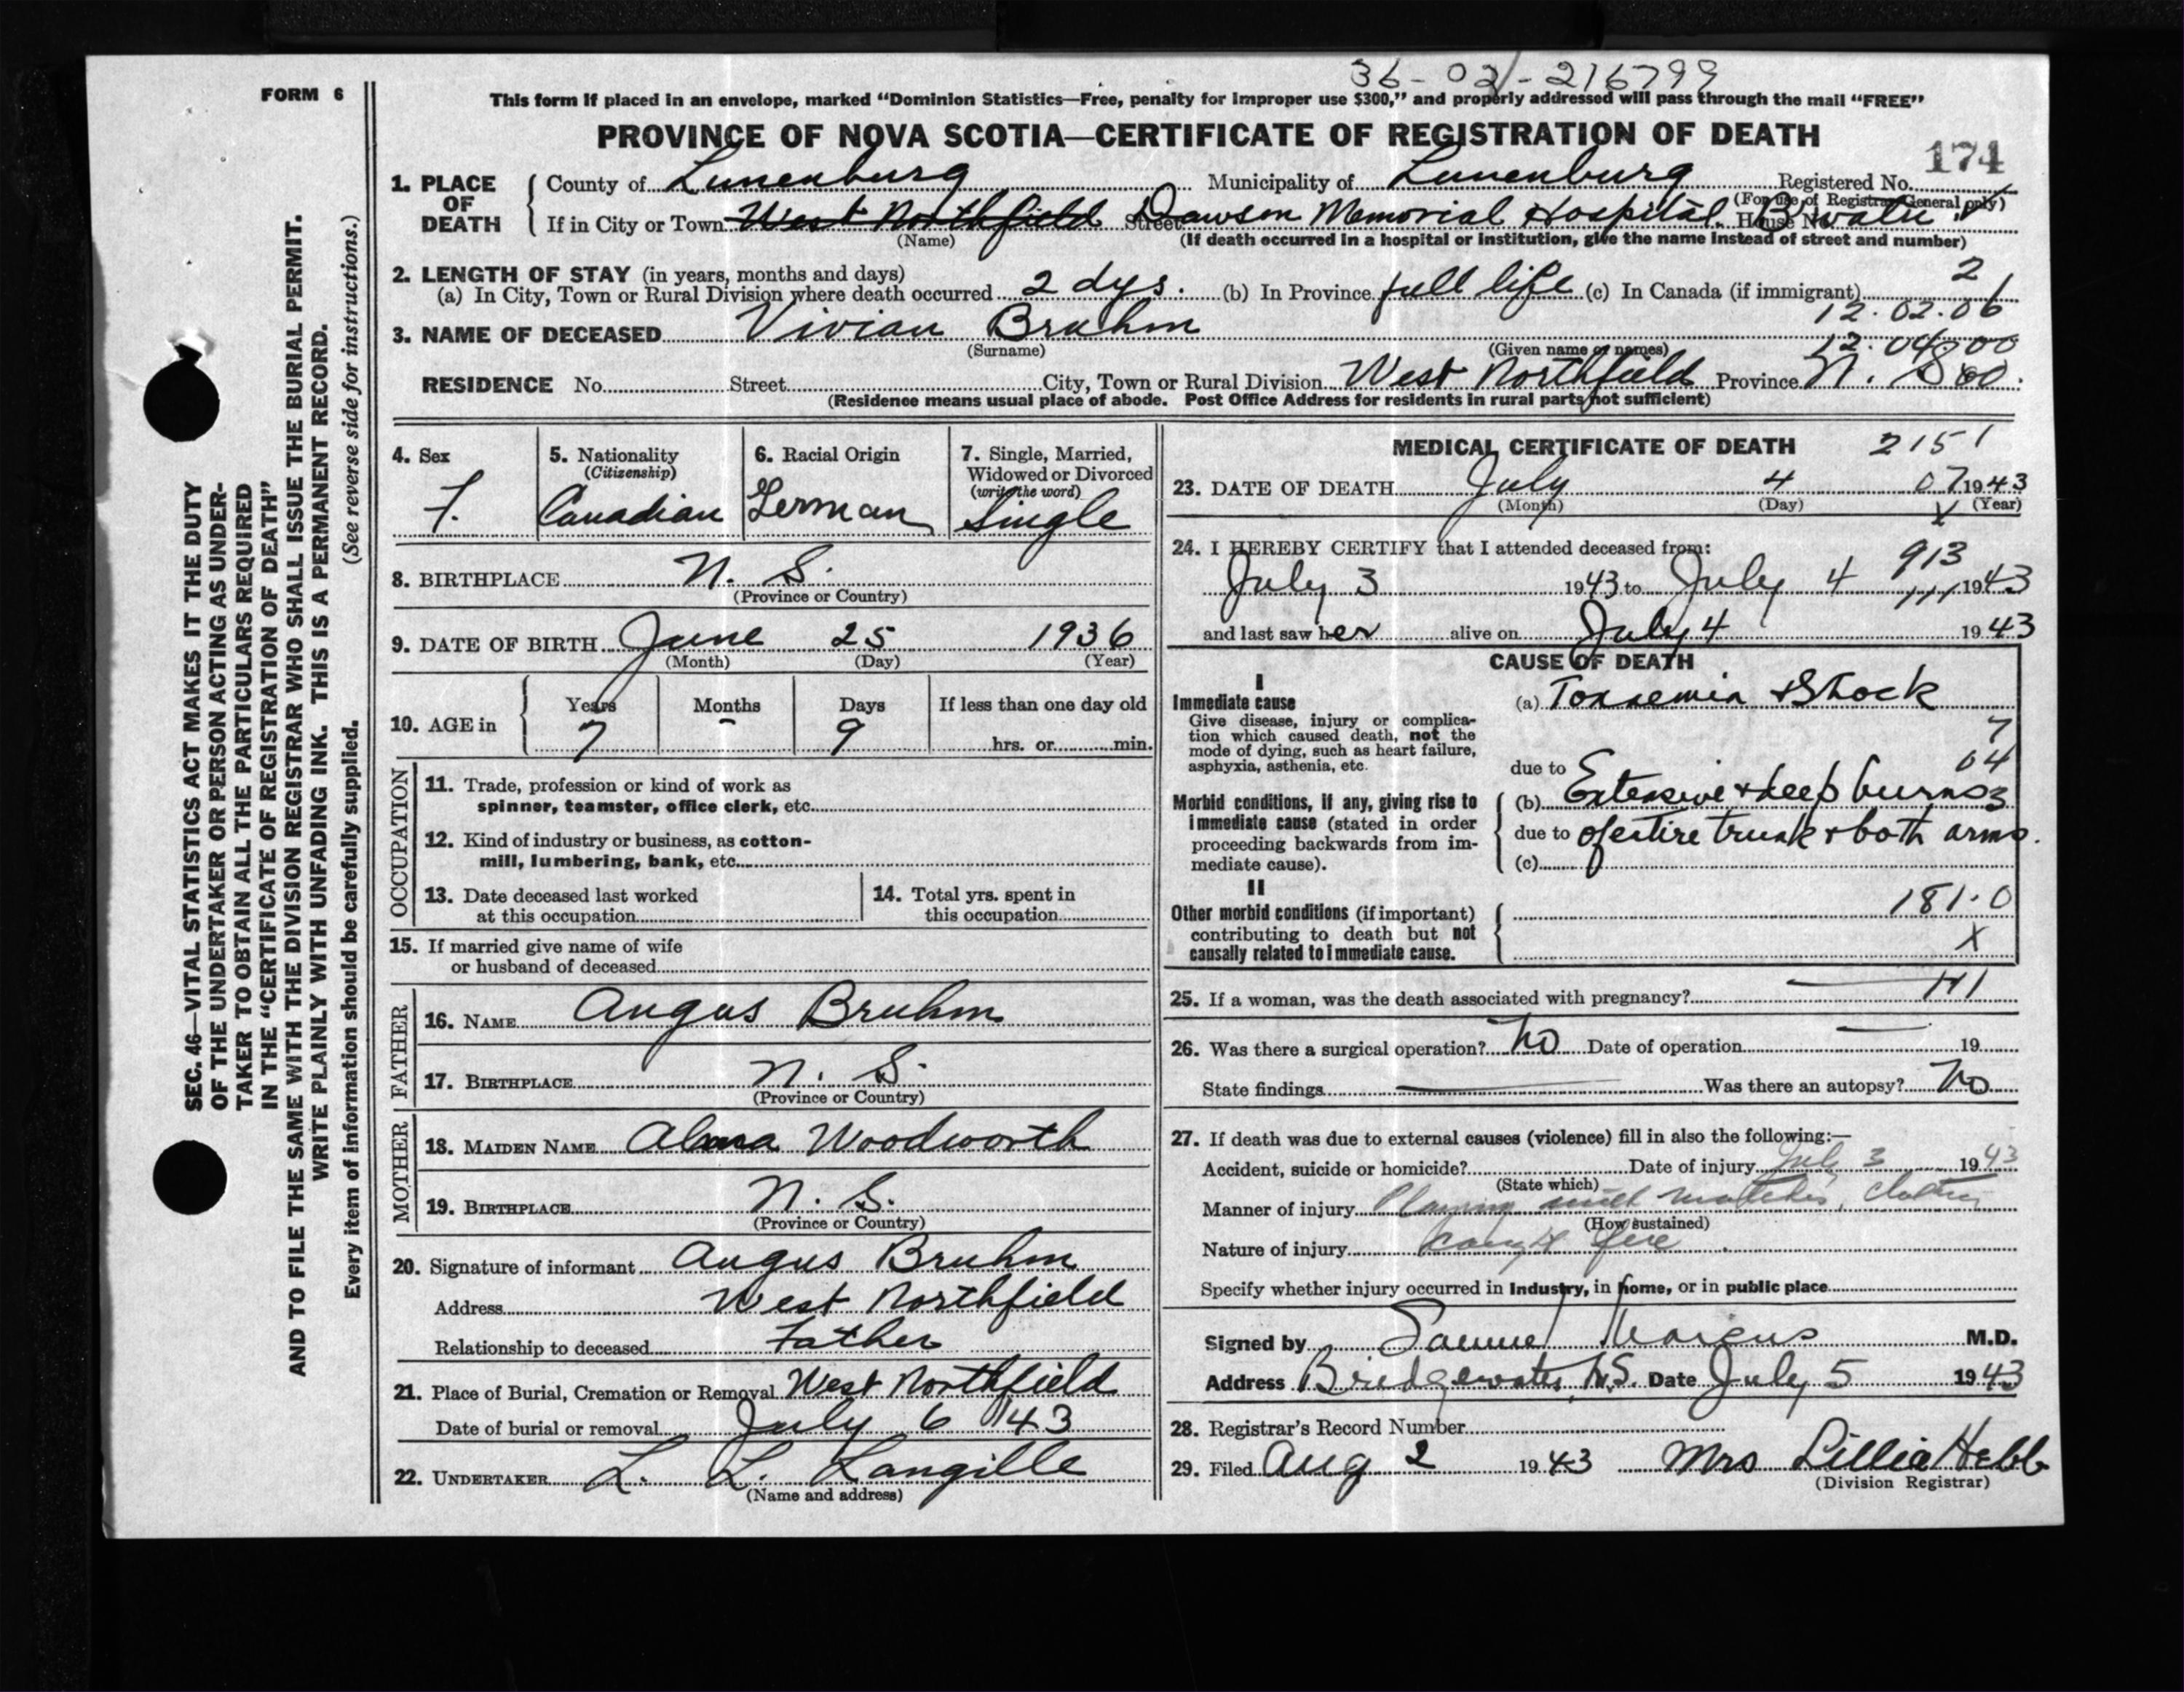 36-02-216799
FORM 6
This form if placed in an envelope, marked “Dominion Statistics—Free, penalty for improper use $300,” and properly addressed will pass through the mail “FREE”
PROVINCE OF NOVA SCOTIA—CERTIFICATE OF REGISTRATION OF DEATH
174
1. PLACE OF DEATH
County of Lunenburg Municipality of Lunenburg Registered No.
(For use of Registrar General only)
If in City or Town West Northfield Street Dawson Memorial Hospital, House No. B'water
(Name) (If death occurred in a hospital or institution, give the name instead of street and number)
2. LENGTH OF STAY (in years, months and days) 2
(a) In City, Town or Rural Division where death occurred 2 dys. (b) In Province full life (c) In Canada (if immigrant)
12.02.06
3. NAME OF DECEASED Vivian Bruhm
(Surname) (Given name or names) 12.04.00
RESIDENCE No. Street City, Town or Rural Division West Northfield Province N. S.
(Residence means usual place of abode. Post Office Address for residents in rural parts not sufficient)
4. Sex
F.
5. Nationality
(Citizenship)
Canadian
6. Racial Origin
German
7. Single, Married,
Widowed or Divorced
(write the word)
Single
8. BIRTHPLACE N. S.
(Province or Country)
9. DATE OF BIRTH June 25 1936
(Month) (Day) (Year)
10. AGE in
Years Months Days If less than one day old
7 - 9 hrs. or min.
OCCUPATION
11. Trade, profession or kind of work as
spinner, teamster, office clerk, etc.
12. Kind of industry or business, as cotton-
mill, lumbering, bank, etc.
13. Date deceased last worked
at this occupation
14. Total yrs. spent in
this occupation
15. If married give name of wife
or husband of deceased
FATHER
16. NAME Angus Bruhm
17. BIRTHPLACE N. S.
(Province or Country)
MOTHER
18. MAIDEN NAME Alma Woodworth
19. BIRTHPLACE N. S.
(Province or Country)
20. Signature of informant Angus Bruhm
Address West Northfield
Relationship to deceased Father
21. Place of Burial, Cremation or Removal West Northfield
Date of burial or removal July 6 1943
22. UNDERTAKER L. L. Langille
(Name and address)
MEDICAL CERTIFICATE OF DEATH 2151
23. DATE OF DEATH July 4 07 1943
(Month) (Day) (Year)
X
24. I HEREBY CERTIFY that I attended deceased from:
913
July 3 1943 to July 4 1943
and last saw her alive on July 4 1943
CAUSE OF DEATH
I
Immediate cause
Give disease, injury or complica-
tion which caused death, not the
mode of dying, such as heart failure,
asphyxia, asthenia, etc.
(a) Toxaemia & Shock
7
64
due to
Morbid conditions, if any, giving rise to
immediate cause (stated in order
proceeding backwards from im-
mediate cause).
(b) Extensive & deep burns 3
due to of entire trunk & both arms.
(c)
II
Other morbid conditions (if important)
contributing to death but not
causally related to immediate cause.
181.0
X
25. If a woman, was the death associated with pregnancy?
26. Was there a surgical operation? No Date of operation — 19
State findings — Was there an autopsy? No
27. If death was due to external causes (violence) fill in also the following:—
Accident, suicide or homicide? Date of injury July 3 1943
(State which)
Manner of injury Playing with matches, clothing
(How sustained)
Nature of injury caught fire
Specify whether injury occurred in Industry, in home, or in public place
Signed by Samuel Marcus M.D.
Address Bridgewater, N.S. Date July 5 1943
28. Registrar's Record Number
29. Filed Aug 2 1943 Mrs Lillia Hebb
(Division Registrar)
SEC. 46—VITAL STATISTICS ACT MAKES IT THE DUTY
OF THE UNDERTAKER OR PERSON ACTING AS UNDER-
TAKER TO OBTAIN ALL THE PARTICULARS REQUIRED
IN THE “CERTIFICATE OF REGISTRATION OF DEATH”
AND TO FILE THE SAME WITH THE DIVISION REGISTRAR WHO SHALL ISSUE THE BURIAL PERMIT.
WRITE PLAINLY WITH UNFADING INK. THIS IS A PERMANENT RECORD.
Every item of information should be carefully supplied. (See reverse side for instructions.)